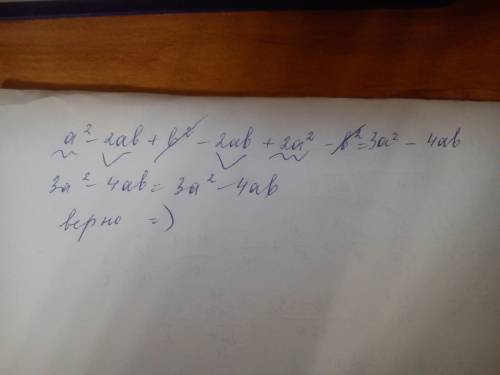 a² - 2ab + b² - 2ab + 2a² - b² = 3a² - 4ab
3a² - 4ab = 3a² - 4ab
верно =)